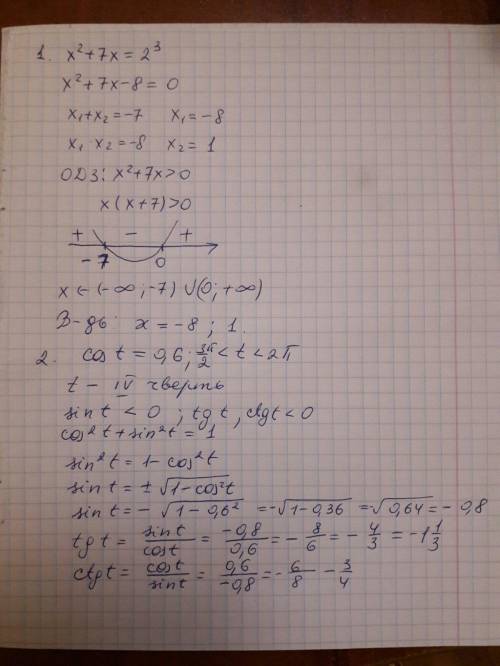 1. x² + 7x = 2³
x² + 7x - 8 = 0
x₁ + x₂ = -7 x₁ = -8
x₁ x₂ = -8 x₂ = 1
ОДЗ: x² + 7x > 0
x (x + 7) > 0
+ - +
-7 0
x ∈ (-∞; -7) ∪ (0; +∞)
В-дь: x = -8 ; 1.
2. cos t = 0,6; 3π/2 < t < 2π
t - IV чверть
sin t < 0 ; tg t, ctg t < 0
cos² t + sin² t = 1
sin² t = 1 - cos² t
sin t = ± √(1 - cos² t)
sin t = - √(1 - 0,6²) = -√(1 - 0,36) = √0,64 = - 0,8
tg t = sin t / cos t = -0,8 / 0,6 = - 8/6 = - 4/3 = -1 1/3
ctg t = cos t / sin t = 0,6 / -0,8 = - 6/8 - 3/4